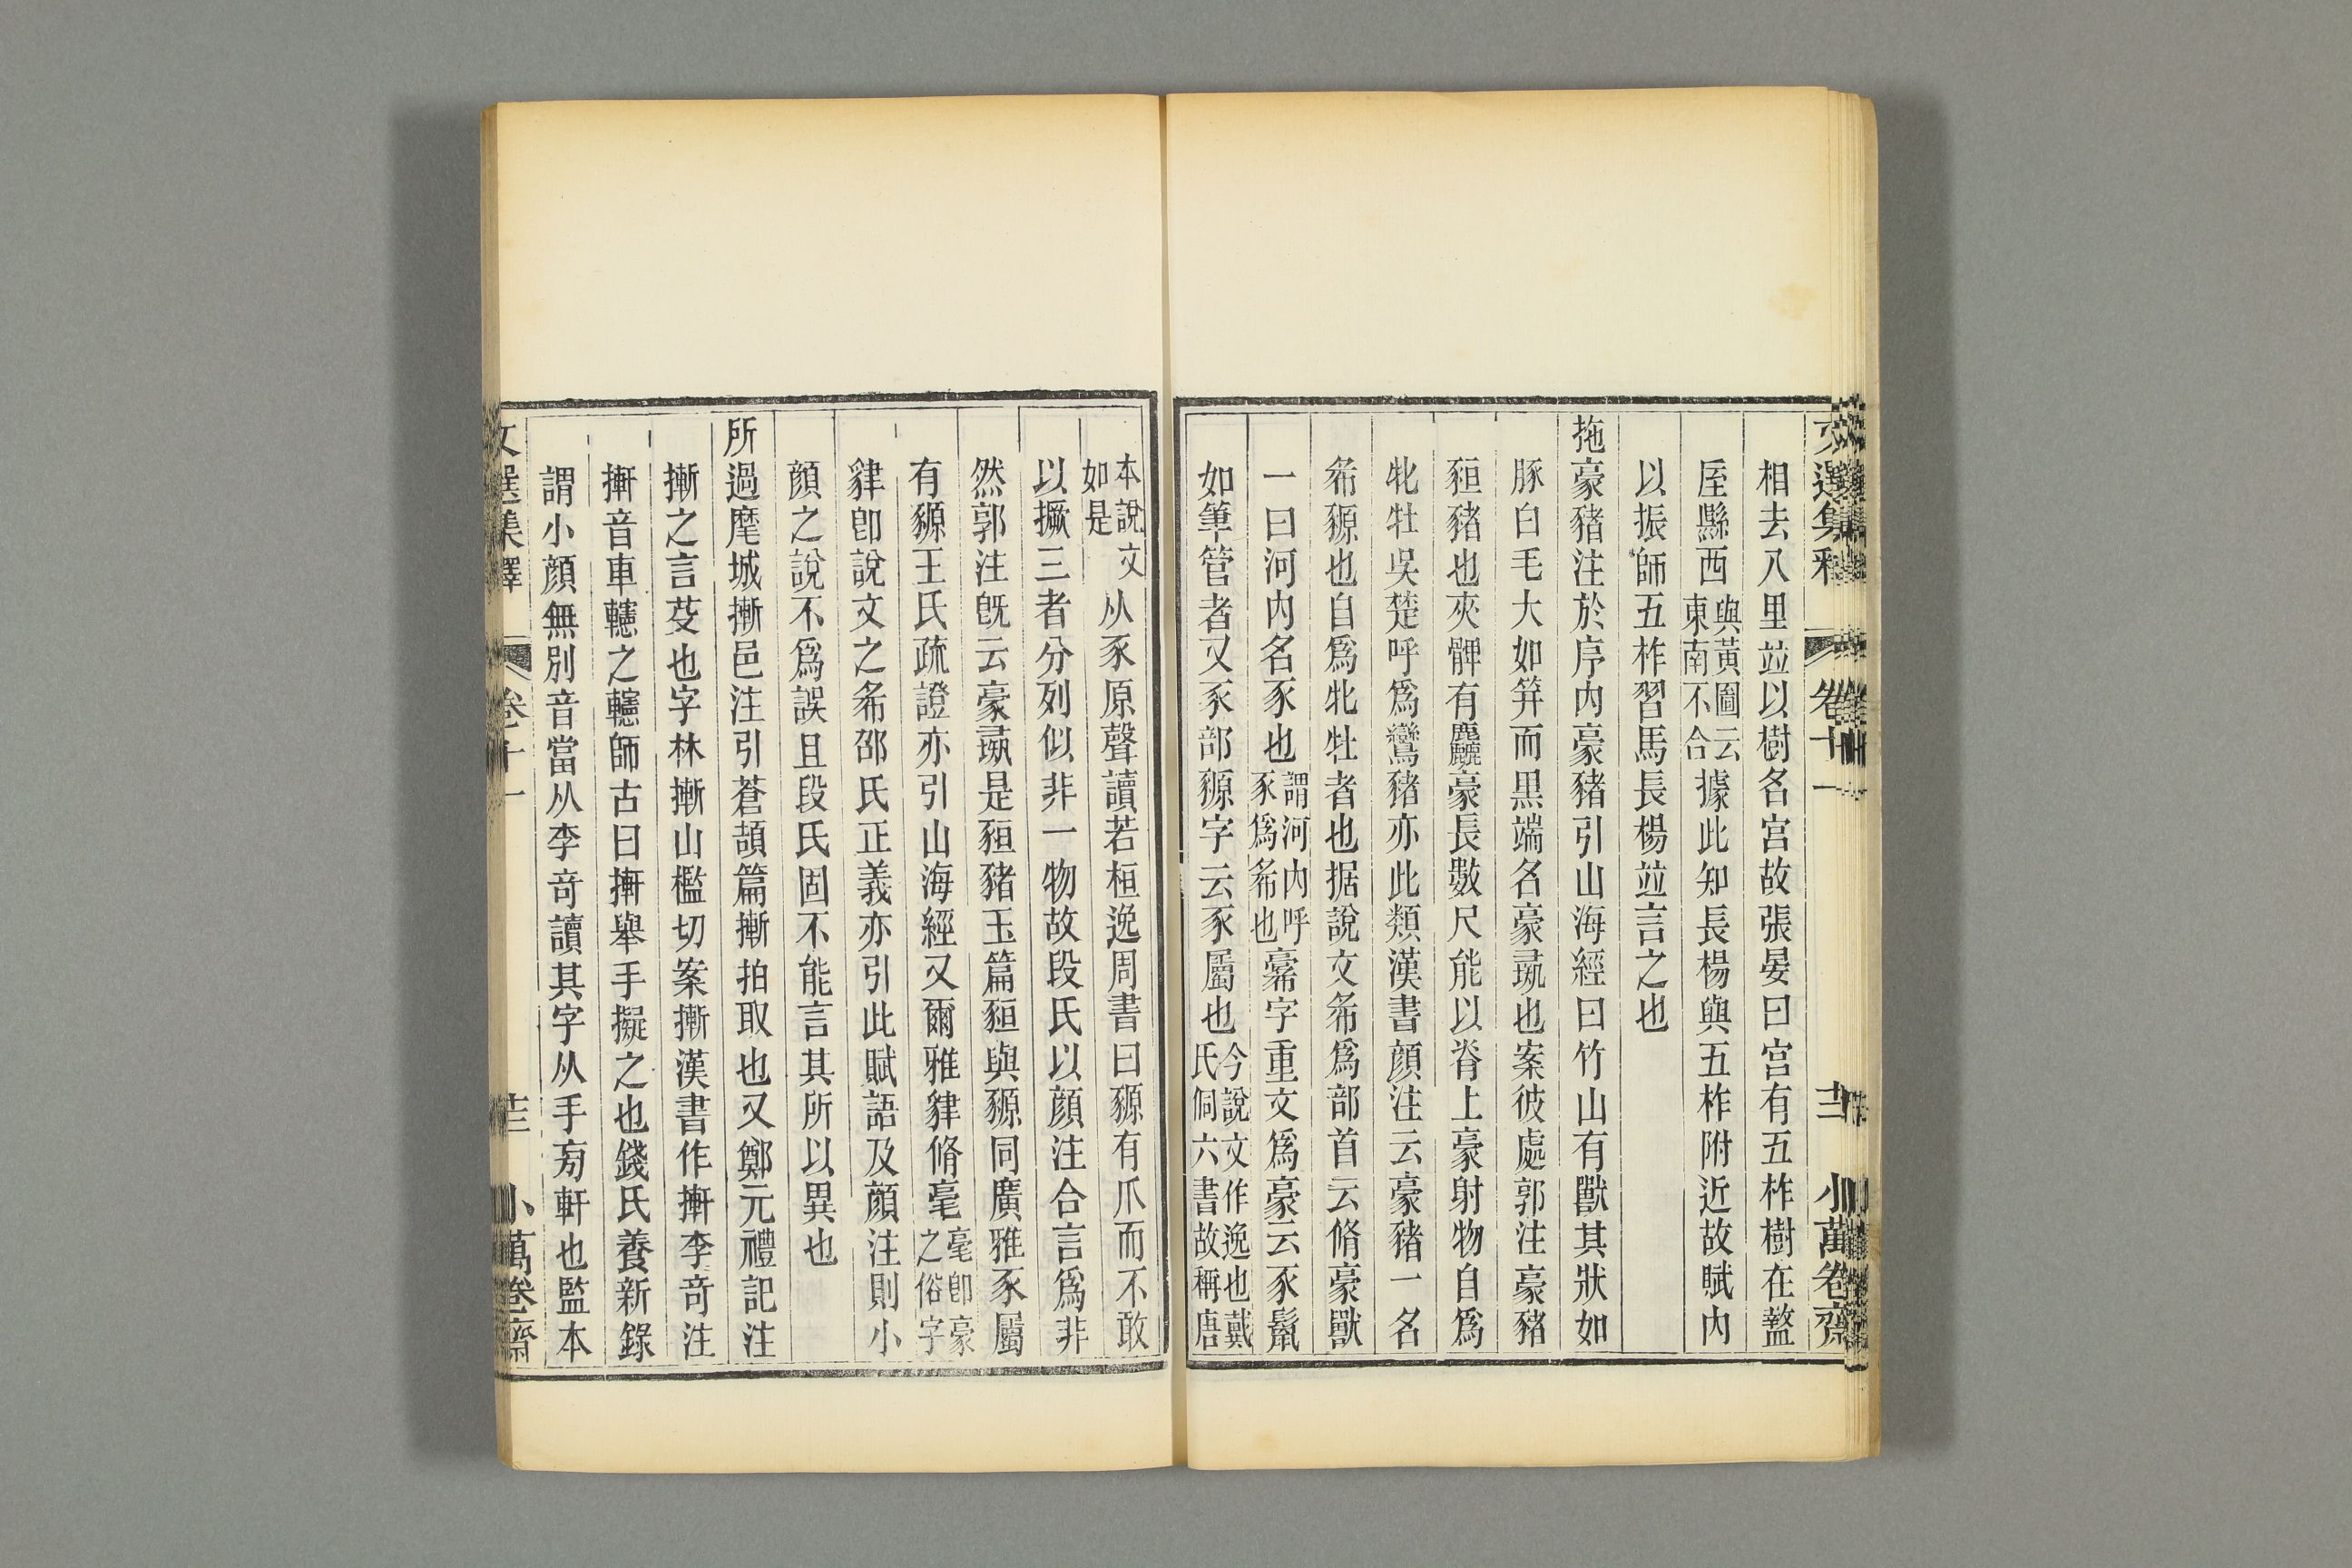 文選集釋 卷十一 十二 小萬卷齋
相去八里竝以樹名宫故張晏曰宫有五柞樹在盩
厔縣西與黃圖云東南不合據此知長楊與五柞附近故賦内
以振師五柞習馬長楊竝言之也
拖豪豬注於序内豪豬引山海經曰竹山有獸其狀如
豚白毛大如笄而黑端名豪彘也案彼處郭注豪豬
貆豬也夾髀有麤豪長數尺能以脊上豪射物自為
牝牡吳楚呼為鸞豬亦此類漢書顏注云豪豬一名
希豲也自為牝牡者也据說文㣇為部首云脩豪獸
一曰河内名豕也謂河内呼豕為㣇也字重文為豪云豕鬛
如筆管者又豕部豲字云豕屬也今說文作逸也戴氏侗六書故稱唐
本說文如是从豕原聲讀若桓逸周書曰豲有爪而不敢
以撅三者分列似非一物故段氏以顏注合言為非
然郭注旣云豪彘是貆豬玉篇貆與豲同廣雅豕屬
有豲王氏疏證亦引山海經又爾雅貄脩毫毫卽豪之俗字
貄卽說文之㣇邵氏正義亦引此賦語及顏注則小
顏之說不為誤且段氏固不能言其所以異也
所過麾城摲邑注引蒼頡篇摲拍取也又鄭元禮記注
摲之言芟也字林摲山檻切案摲漢書作摲李奇注
摲音車幰之幰師古曰摲舉手擬之也錢氏養新錄
謂小顏無别音當从李奇讀其字从手㫄軒也監本
文選集釋 卷十一 十三 小萬卷齋